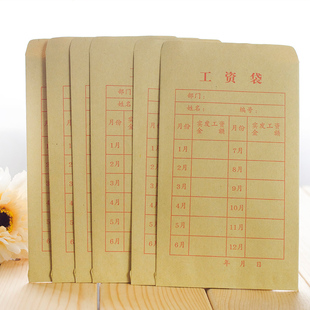 工资袋
部门:
姓名: 编号:
月份 实发工资金额 月份 实发工资金额
1月 7月
2月 8月
3月 9月
4月 10月
5月 11月
6月 12月
年 月 日
1月
2月
3月
4月
5月
6月